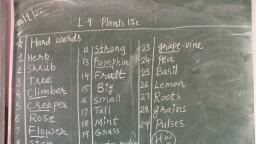 L-4 Plants life
Hard words
1 Herb
2 Shrub
3 Tree
4 Climber
5 Creeper
6 Rose
7 Flower
8 Stem
12 Strong
13 Pumpkin
14 Fruit
15 Big
16 Small
17 Tall
18 Mint
19 Grass
23 grape-vine
24 Pea
25 Basil
26 Lemon
27 Roots
28 grains
29 Pulses
H.W